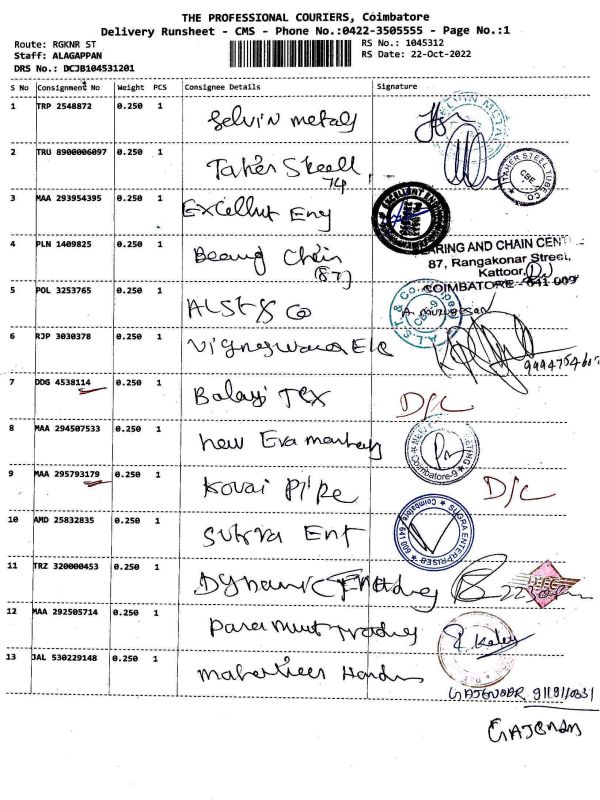 THE PROFESSIONAL COURIERS, Coimbatore
Delivery Runsheet - CMS - Phone No.:0422-3505555 - Page No.:1
Route: RGKNR ST
RS No.: 1045312
Staff: ALAGAPPAN
RS Date: 22-Oct-2022
DRS No.: DCJB104531201
S No Consignment No Weight PCS Consignee Details Signature
1 TRP 2548872 0.250 1 Selvin metals
2 TRU 8900006097 0.250 1 Taher Steell
74
TAHER STEEL TUBE CO
CBE
3 MAA 293954395 0.250 1 Excellut Eng
4 PLN 1409825 0.250 1 Bearing Chain
(87)
BEARING AND CHAIN CENT
87, Rangakonar Street,
Kattoor,
COIMBATORE - 641 009
5 POL 3253765 0.250 1 ALST & Co
A. murugesan
A.L.S.T. & Co.
CBE-9
6 RJP 3030378 0.250 1 Vigneswara Ele
7 DDG 4538114 0.250 1 Balaji TEX D/C
8 MAA 294507533 0.250 1 new Era
Coimbatore-9
9 MAA 295793179 0.250 1 Kovai Pipe D/C
10 AMD 25832835 0.250 1 Sugra Ent
SUGRA ENTERPRISES
Coimbatore 641 009
11 TRZ 320000453 0.250 1 Dynamic
12 MAA 292505714 0.250 1 Paramount Trading
13 JAL 530229148 0.250 1